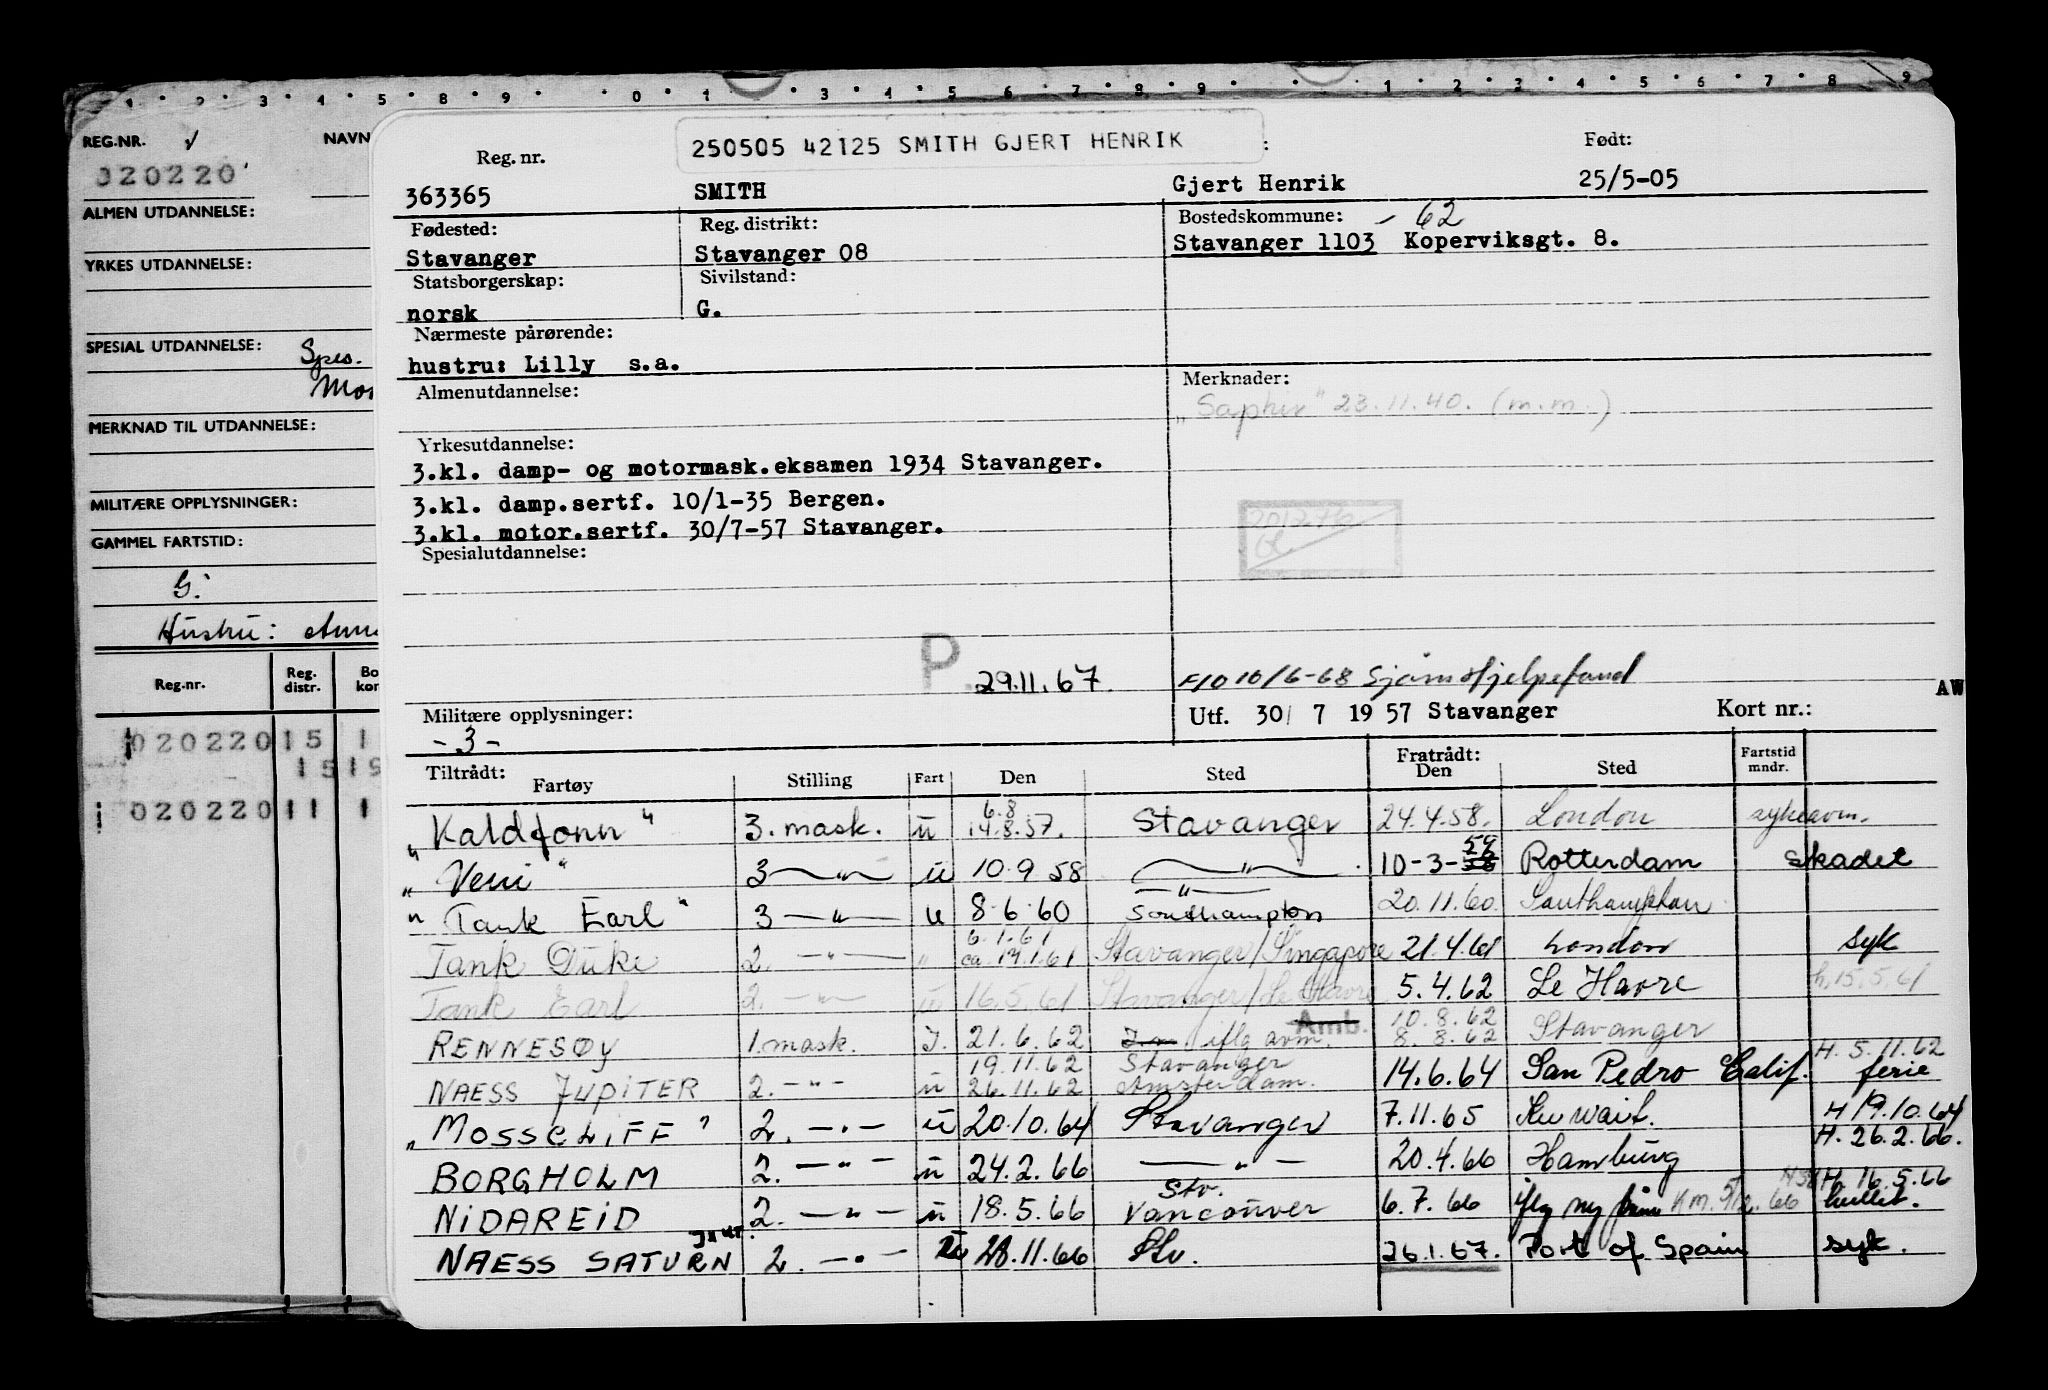 1 2 3 4 5 8 9 0 1 3 4 5 6 7 8 9 1 2 3 4 5 6 7 8 9
REG.NR. NAVN
020220
ALMEN UTDANNELSE:
YRKES UTDANNELSE:
SPESIAL UTDANNELSE: Spes.
MERKNAD TIL UTDANNELSE:
MILITÆRE OPPLYSNINGER:
GAMMEL FARTSTID:
G.
Hustru:
Reg.nr. Reg. distr. Bo kor
020220 15 1
15 19
020220 11 1
250505 42125 SMITH GJERT HENRIK
Reg. nr. : Født:
363365 SMITH Gjert Henrik 25/5-05
Fødested: Reg. distrikt: Bostedskommune: - 62
Stavanger Stavanger 08 Stavanger 1103 Koperviksgt. 8.
Statsborgerskap: Sivilstand:
norsk G.
Nærmeste pårørende:
hustru: Lilly s.a.
Almenutdannelse: Merknader:
"Saphir" 23.11.40. (m.m.)
Yrkesutdannelse:
3.kl. damp- og motormask.eksamen 1934 Stavanger.
3.kl. damp.sertf. 10/1-35 Bergen.
3.kl. motor.sertf. 30/7-57 Stavanger.
Spesialutdannelse:
P. 29.11.67.
F10 10/6-68 Sjöm.hjelpefond
Militære opplysninger: Utf. 30/ 7 19 57 Stavanger Kort nr.: AW
- 3 -
Tiltrådt: Fratrådt:
Fartøy Stilling Fart Den Sted Den Sted Fartstid mndr.
6.8
"Kaldfonn" 3. mask. u 14.8.57. Stavanger 24.4.58. London sykeavm.
"Veni" 3 —"— u 10.9 58 —"— 10-3-58 59 Rotterdam skadet
—"—
"Tank Earl" 3 —"— u 8.6.60 Southampton 20.11.60. Southampton
6.1.61
Tank Duke 2. —"— " ca. 19.1.61 Stavanger/Singapore 21.4.61 London syk
Tank Earl 2. —"— u 16.5.61 Stavanger/Le Havre 5.4.62 Le Havre h.15.5.61
Amb. 10.8.62
RENNESØY 1.mask. I. 21.6.62 iflg avm. 8.8.62 Stavanger
19.11.62 Stavanger H. 5.11.62
NAESS JUPITER 2. -"- u 26.11.62 Amsterdam. 14.6.64 San Pedro Calif. ferie
"MOSSCLIFF" 2. —"— u 20.10.64 Stavanger 7.11.65 Kuwait. H 19.10.64
H. 26.2.66.
BORGHOLM 2. —"— u 24.2.66 —"— 20.4.66 Hamburg
Stv. H. 16.5.66
NIDAREID 2. —"— u 18.5.66 Vancouver 6.7.66 iflg ny KM. 5/12.66
NAESS SATURN 2. —"— u 28.11.66 Stv. 26.1.67. Port of Spain syk.